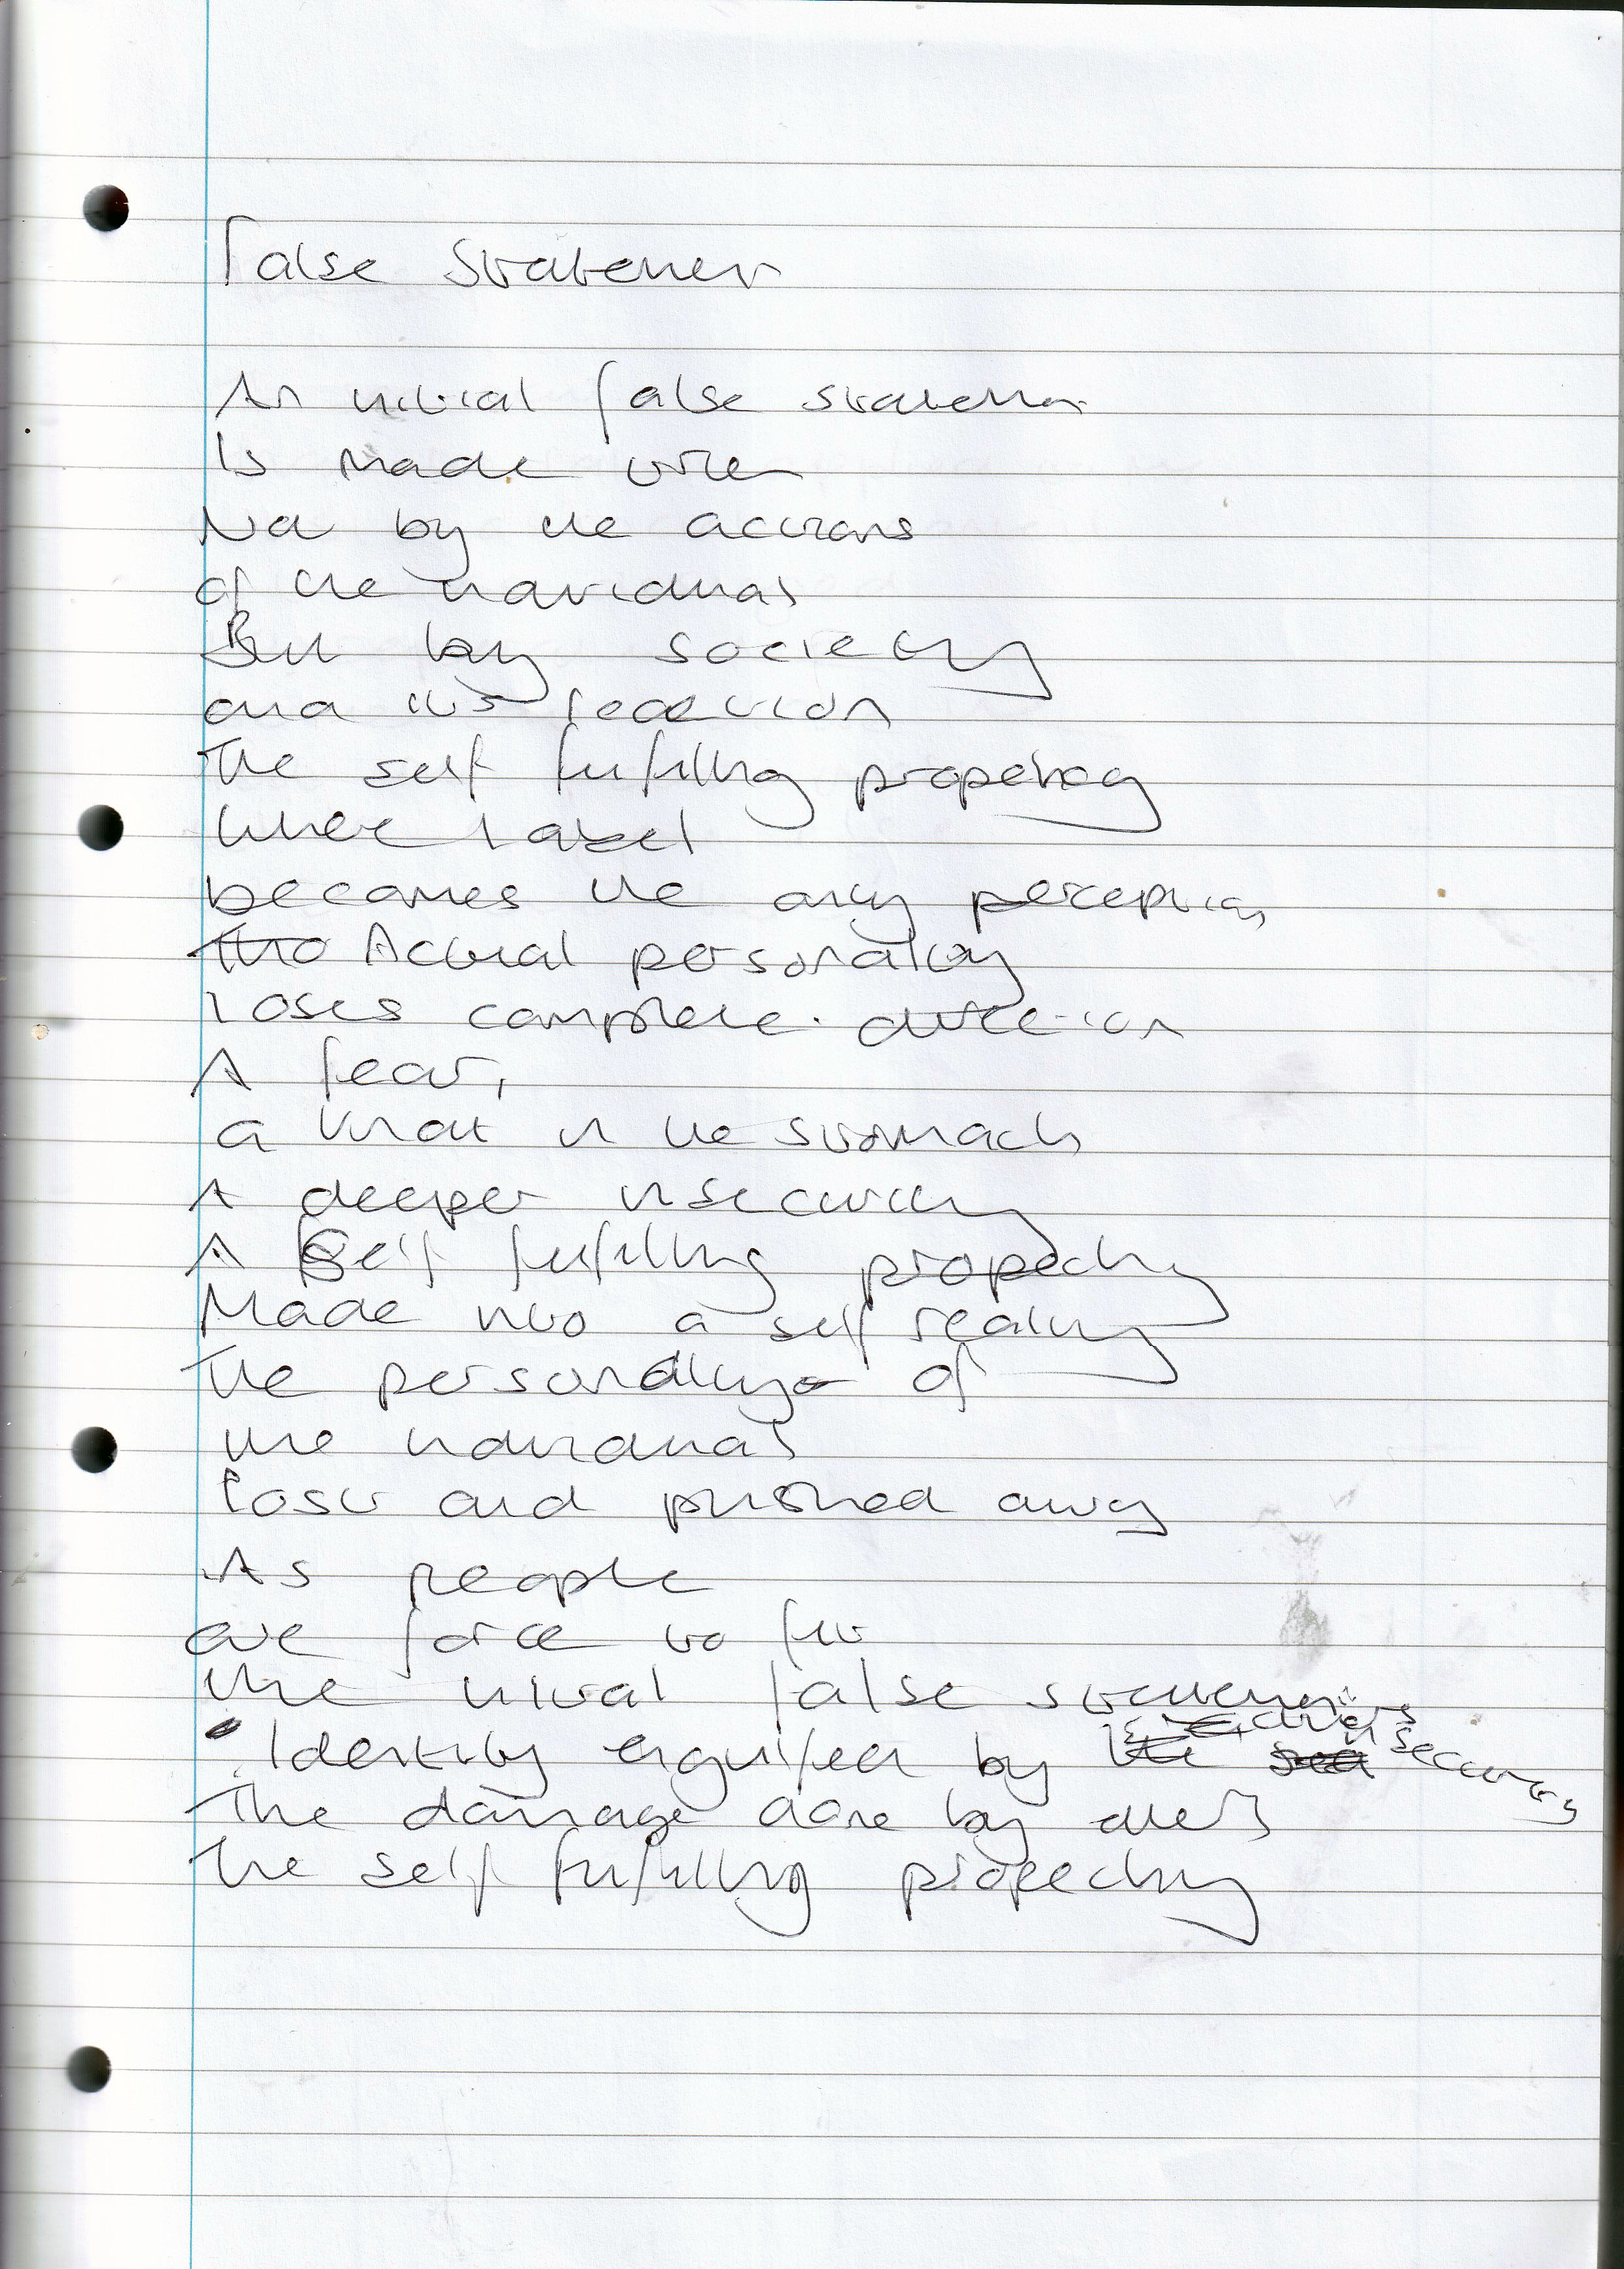 False Statement
An initial false statement
Is made when
Not by the actions
of the individual
But by society
and its reaction
The self fulfilling propehcy
When label
becomes the only perception
Actual personality
loses complete direction
A fear,
a knot in the stomach
A deeper insecurity
A Self fulfilling propechy
Made into a self reality
The personality of
the individual
lost and pushed away
As people
are force to fit
the initial false statement
Identity engulfed by others insecurity
The damage done by others
The self fulfilling propechy